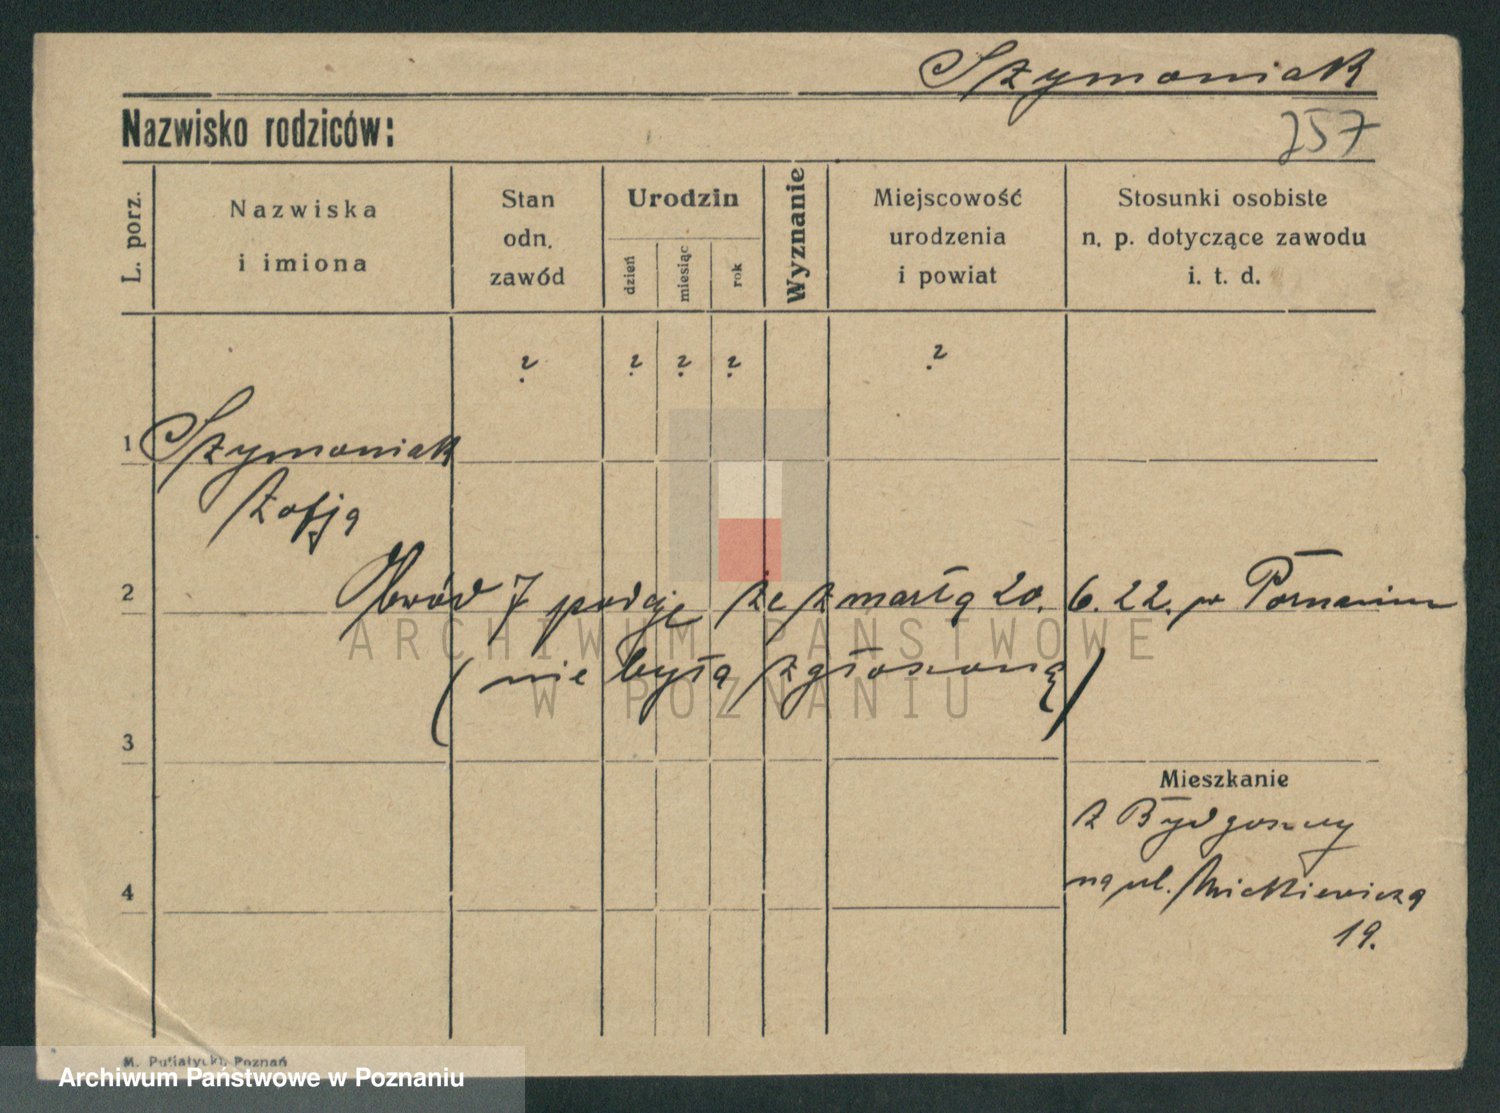 Szymoniak
Nazwisko rodziców:
257
L. porz.
Nazwiska
i imiona
Stan
odn.
zawód
Urodzin
dzień
miesiąc
rok
Wyznanie
Miejscowość
urodzenia
i powiat
Stosunki osobiste
n. p. dotyczące zawodu
i. t. d.
? ? ? ? ?
1 Szymoniak
Zofja
2 Obwód 7 podaje że zmarła 20. 6. 22. w Poznaniu
ARCHIWUM PAŃSTWOWE
(nie była zgłoszoną)
W POZNANIU
3
Mieszkanie
z Bydgoszczy
na ul. Mickiewicza
4
19.
M. Putiatycki, Poznań
Archiwum Państwowe w Poznaniu